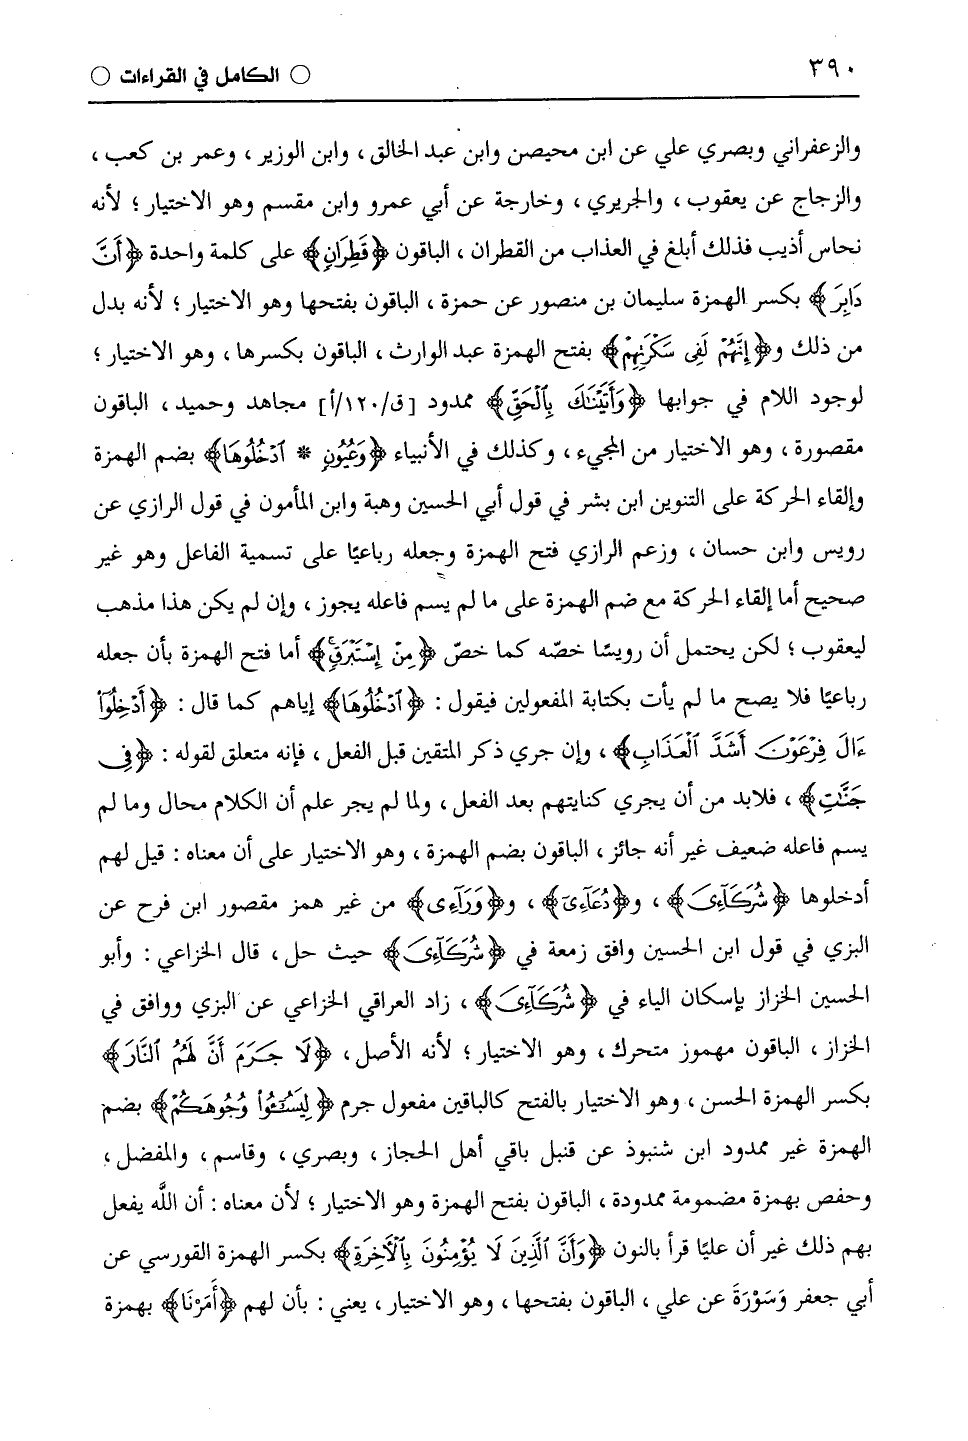 ٣٩٠
○ الكامل في القراءات ○
والزعفراني وبصري علي عن ابن محيصن وابن عبد الخالق، وابن الوزير، وعمر بن كعب،
والزجاج عن يعقوب، والجريري، وخارجة عن أبي عمرو وابن مقسم وهو الاختيار؛ لأنه
نحاس أذيب فذلك أبلغ في العذاب من القطران، الباقون ﴿قَطِرَانٍ﴾ على كلمة واحدة ﴿أَنَّ
دَابِرَ﴾ بكسر الهمزة سليمان بن منصور عن حمزة، الباقون بفتحها وهو الاختيار؛ لأنه بدل
من ذلك و﴿إِنَّهُمْ لَفِى سَكْرَتِهِمْ﴾ بفتح الهمزة عبد الوارث، الباقون بكسرها، وهو الاختيار؛
لوجود اللام في جوابها ﴿وَأَتَيْنَٰكَ بِٱلْحَقِّ﴾ ممدود [ق/١٢٠/أ] مجاهد وحميد، الباقون
مقصورة، وهو الاختيار من المجيء، وكذلك في الأنبياء ﴿وَعُيُونٍ * ٱدْخُلُوهَا﴾ بضم الهمزة
وإلقاء الحركة على التنوين ابن بشر في قول أبي الحسين وهبة وابن المأمون في قول الرازي عن
رويس وابن حسان، وزعم الرازي فتح الهمزة وجعله رباعيًا على تسمية الفاعل وهو غير
صحيح أما إلقاء الحركة مع ضم الهمزة على ما لم يسم فاعله يجوز، وإن لم يكن هذا مذهب
ليعقوب؛ لكن يحتمل أن رويسًا خصّه كما خصّ ﴿مِنْ إِسْتَبْرَقٍ﴾ أما فتح الهمزة بأن جعله
رباعيًا فلا يصح ما لم يأت بكتابة المفعولين فيقول: ﴿ٱدْخُلُوهَا﴾ إياهم كما قال: ﴿أَدْخِلُوٓا۟
ءَالَ فِرْعَوْنَ أَشَدَّ ٱلْعَذَابِ﴾، وإن جري ذكر المتقين قبل الفعل، فإنه متعلق لقوله: ﴿فِى
جَنَّٰتٍ﴾، فلابد من أن يجري كنايتهم بعد الفعل، ولما لم يجر علم أن الكلام محال وما لم
يسم فاعله ضعيف غير أنه جائز، الباقون بضم الهمزة، وهو الاختيار على أن معناه: قيل لهم
أدخلوها ﴿شُرَكَآءِىَ﴾، و﴿دُعَآءِىٓ﴾، و﴿وَرَآءِى﴾ من غير همز مقصور ابن فرح عن
البزي في قول ابن الحسين وافق زمعة في ﴿شُرَكَآءِىَ﴾ حيث حل، قال الخزاعي: وأبو
الحسين الخزاز بإسكان الياء في ﴿شُرَكَآءِىَ﴾، زاد العراقي الخزاعي عن البزي ووافق في
الخزاز، الباقون مهموز متحرك، وهو الاختيار؛ لأنه الأصل، ﴿لَا جَرَمَ أَنَّ لَهُمُ ٱلنَّارَ﴾
بكسر الهمزة الحسن، وهو الاختيار بالفتح كالباقين مفعول جرم ﴿لِيَسُـۥٓـُٔوا۟ وُجُوهَكُمْ﴾ بضم
الهمزة غير ممدود ابن شنبوذ عن قنبل باقي أهل الحجاز، وبصري، وقاسم، والمفضل،
وحفص بهمزة مضمومة ممدودة، الباقون بفتح الهمزة وهو الاختيار؛ لأن معناه: أن اللَّه يفعل
بهم ذلك غير أن عليًا قرأ بالنون ﴿وَأَنَّ ٱلَّذِينَ لَا يُؤْمِنُونَ بِٱلْءَاخِرَةِ﴾ بكسر الهمزة القورسي عن
أبي جعفر وَسَوْرَةَ عن علي، الباقون بفتحها، وهو الاختيار، يعني: بأن لهم ﴿أَمَرْنَا﴾ بهمزة